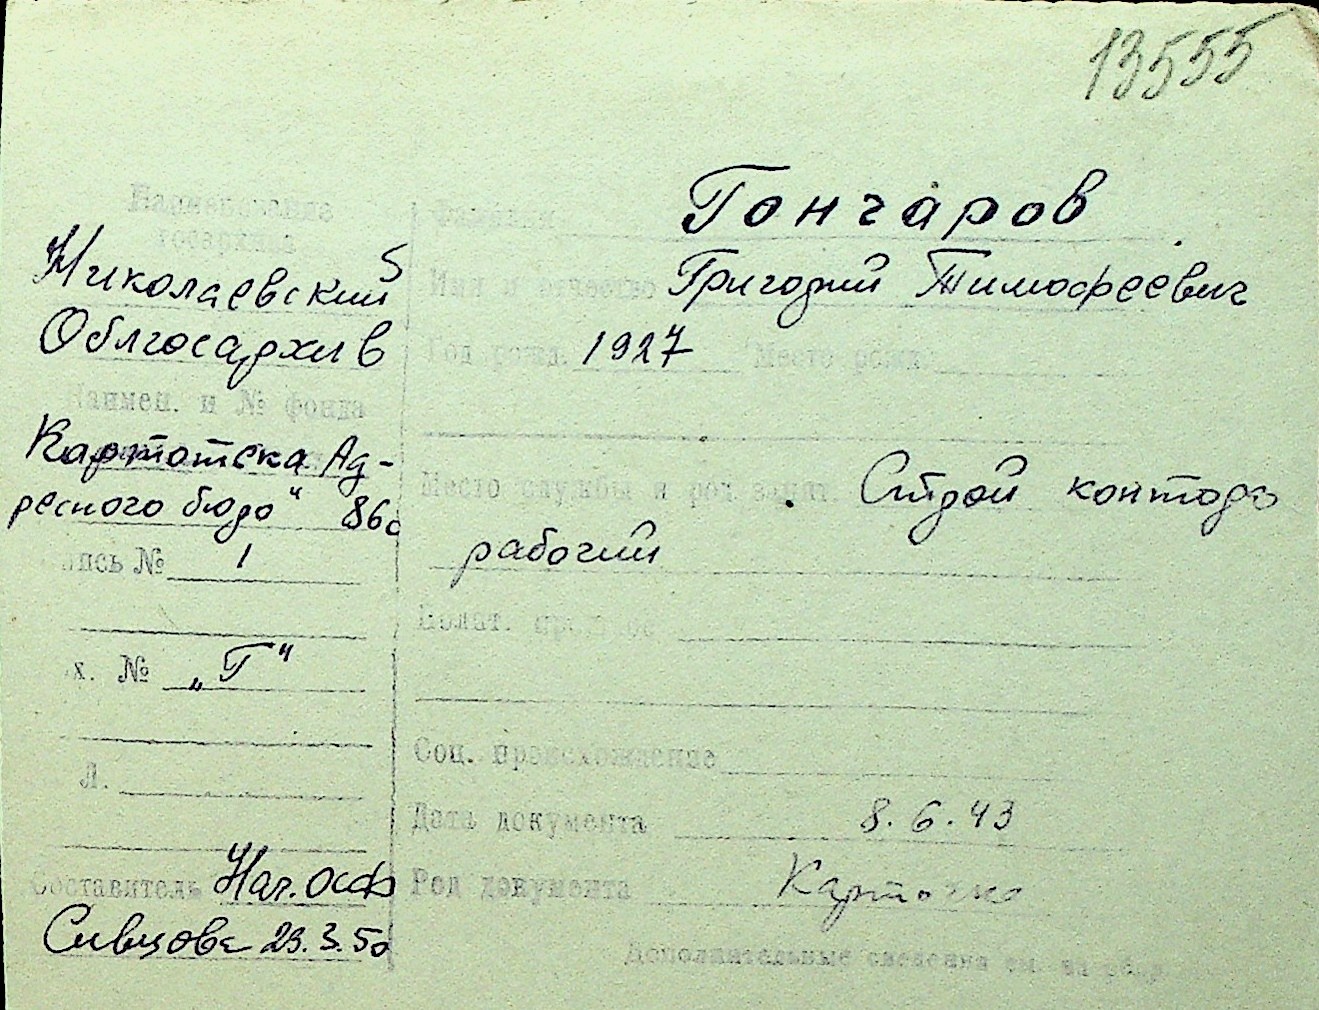 13555
Наименование
госархива
Николаевский
Облгосархив
Наимен. и № фонда
Картотека Ад-
ресного бюро" 86с
пись № 1
х. № „Г"
Л.
Составитель Нач. ОСФ
Сивцова 23.3.50
Фамилия Гончаров
Имя и отчество Григорий Тимофеевич
Год рожд. 1927 Место рожд.
Место службы и род занят. Строй контора
рабочий
Полит. прошлое
Соц. происхождение
Дата документа 8.6.43
Род документа Карточка
Дополнительные сведения см. на обор.